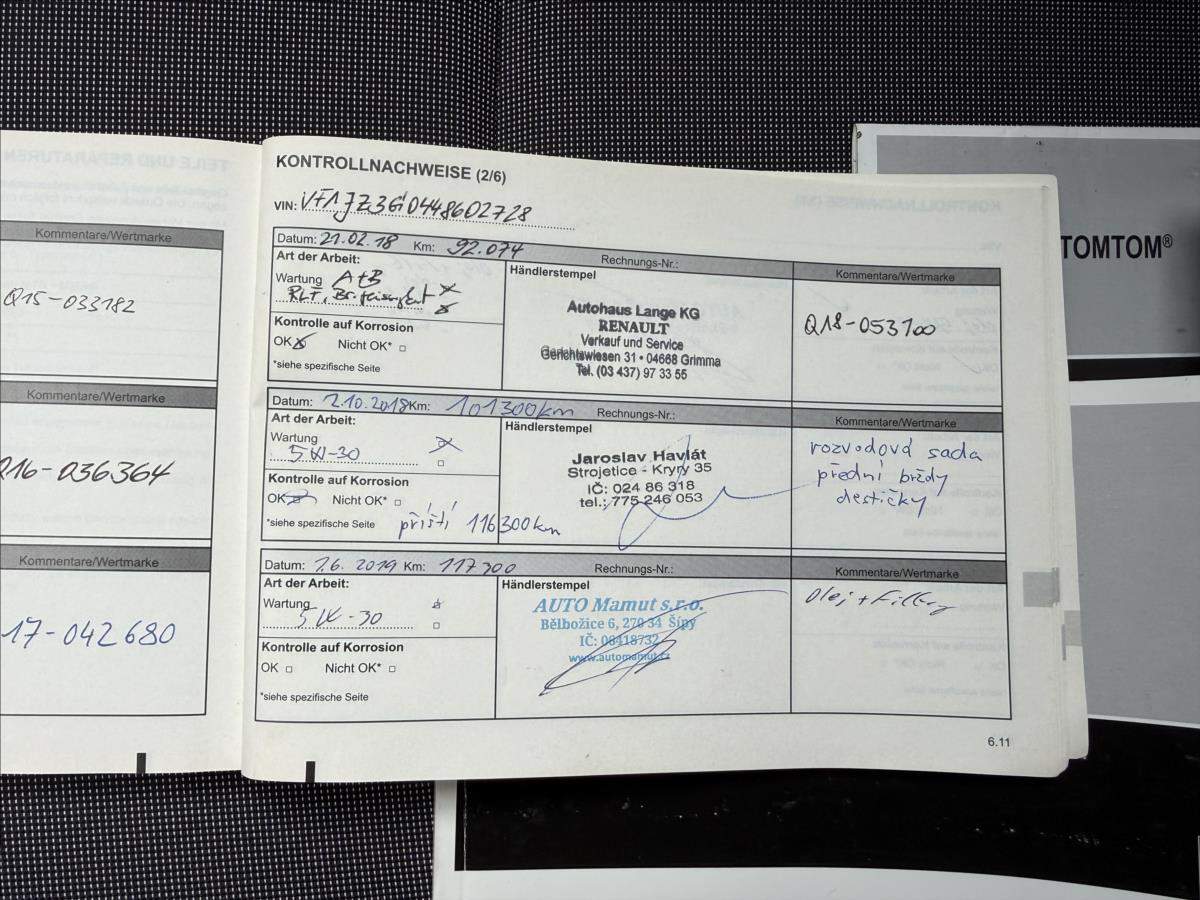 Kommentare/Wertmarke
Q15-033182
Kommentare/Wertmarke
Q16-036364
Kommentare/Wertmarke
17-042680
KONTROLLNACHWEISE (2/6)
VIN: VF1JZ3G0448602728
Datum: 21.02.18 Km: 92.074 Rechnungs-Nr.:
Art der Arbeit:
Wartung A+B
RLF, Br.
Kontrolle auf Korrosion
OK Nicht OK*
*siehe spezifische Seite
Händlerstempel
Autohaus Lange KG
RENAULT
Verkauf und Service
Gerichtswiesen 31 • 04668 Grimma
Tel. (03 437) 97 33 55
Kommentare/Wertmarke
Q18-053100
Datum: 2.10.2018 Km: 101300km Rechnungs-Nr.:
Art der Arbeit:
Wartung
5W-30
Kontrolle auf Korrosion
OK Nicht OK*
*siehe spezifische Seite příští 116300km
Händlerstempel
Jaroslav Havlát
Strojetice - Kryry 35
IČ: 024 86 318
tel.: 775 246 053
Kommentare/Wertmarke
rozvodová sada
přední brždy
destičky
Datum: 1.6. 2019 Km: 117300 Rechnungs-Nr.:
Art der Arbeit:
Wartung
5W-30
Kontrolle auf Korrosion
OK Nicht OK*
*siehe spezifische Seite
Händlerstempel
AUTO Mamut s.r.o.
Bělbožice 6, 270 34 Šípy
IČ: 06418732
www.automamut.cz
Kommentare/Wertmarke
Olej + Filtry
6.11
TOMTOM®